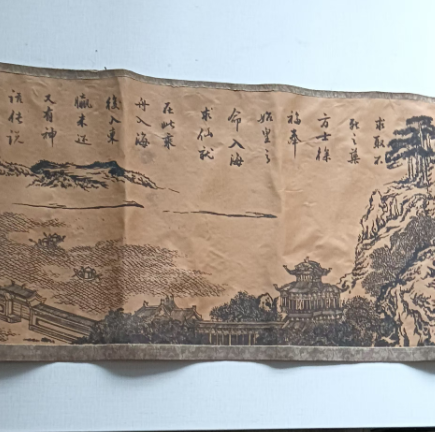 求取不
死之藥
方士徐
福奉
始皇之
命入海
求仙
在此乘
舟入海
後入東
瀛未还
又有神
该传说